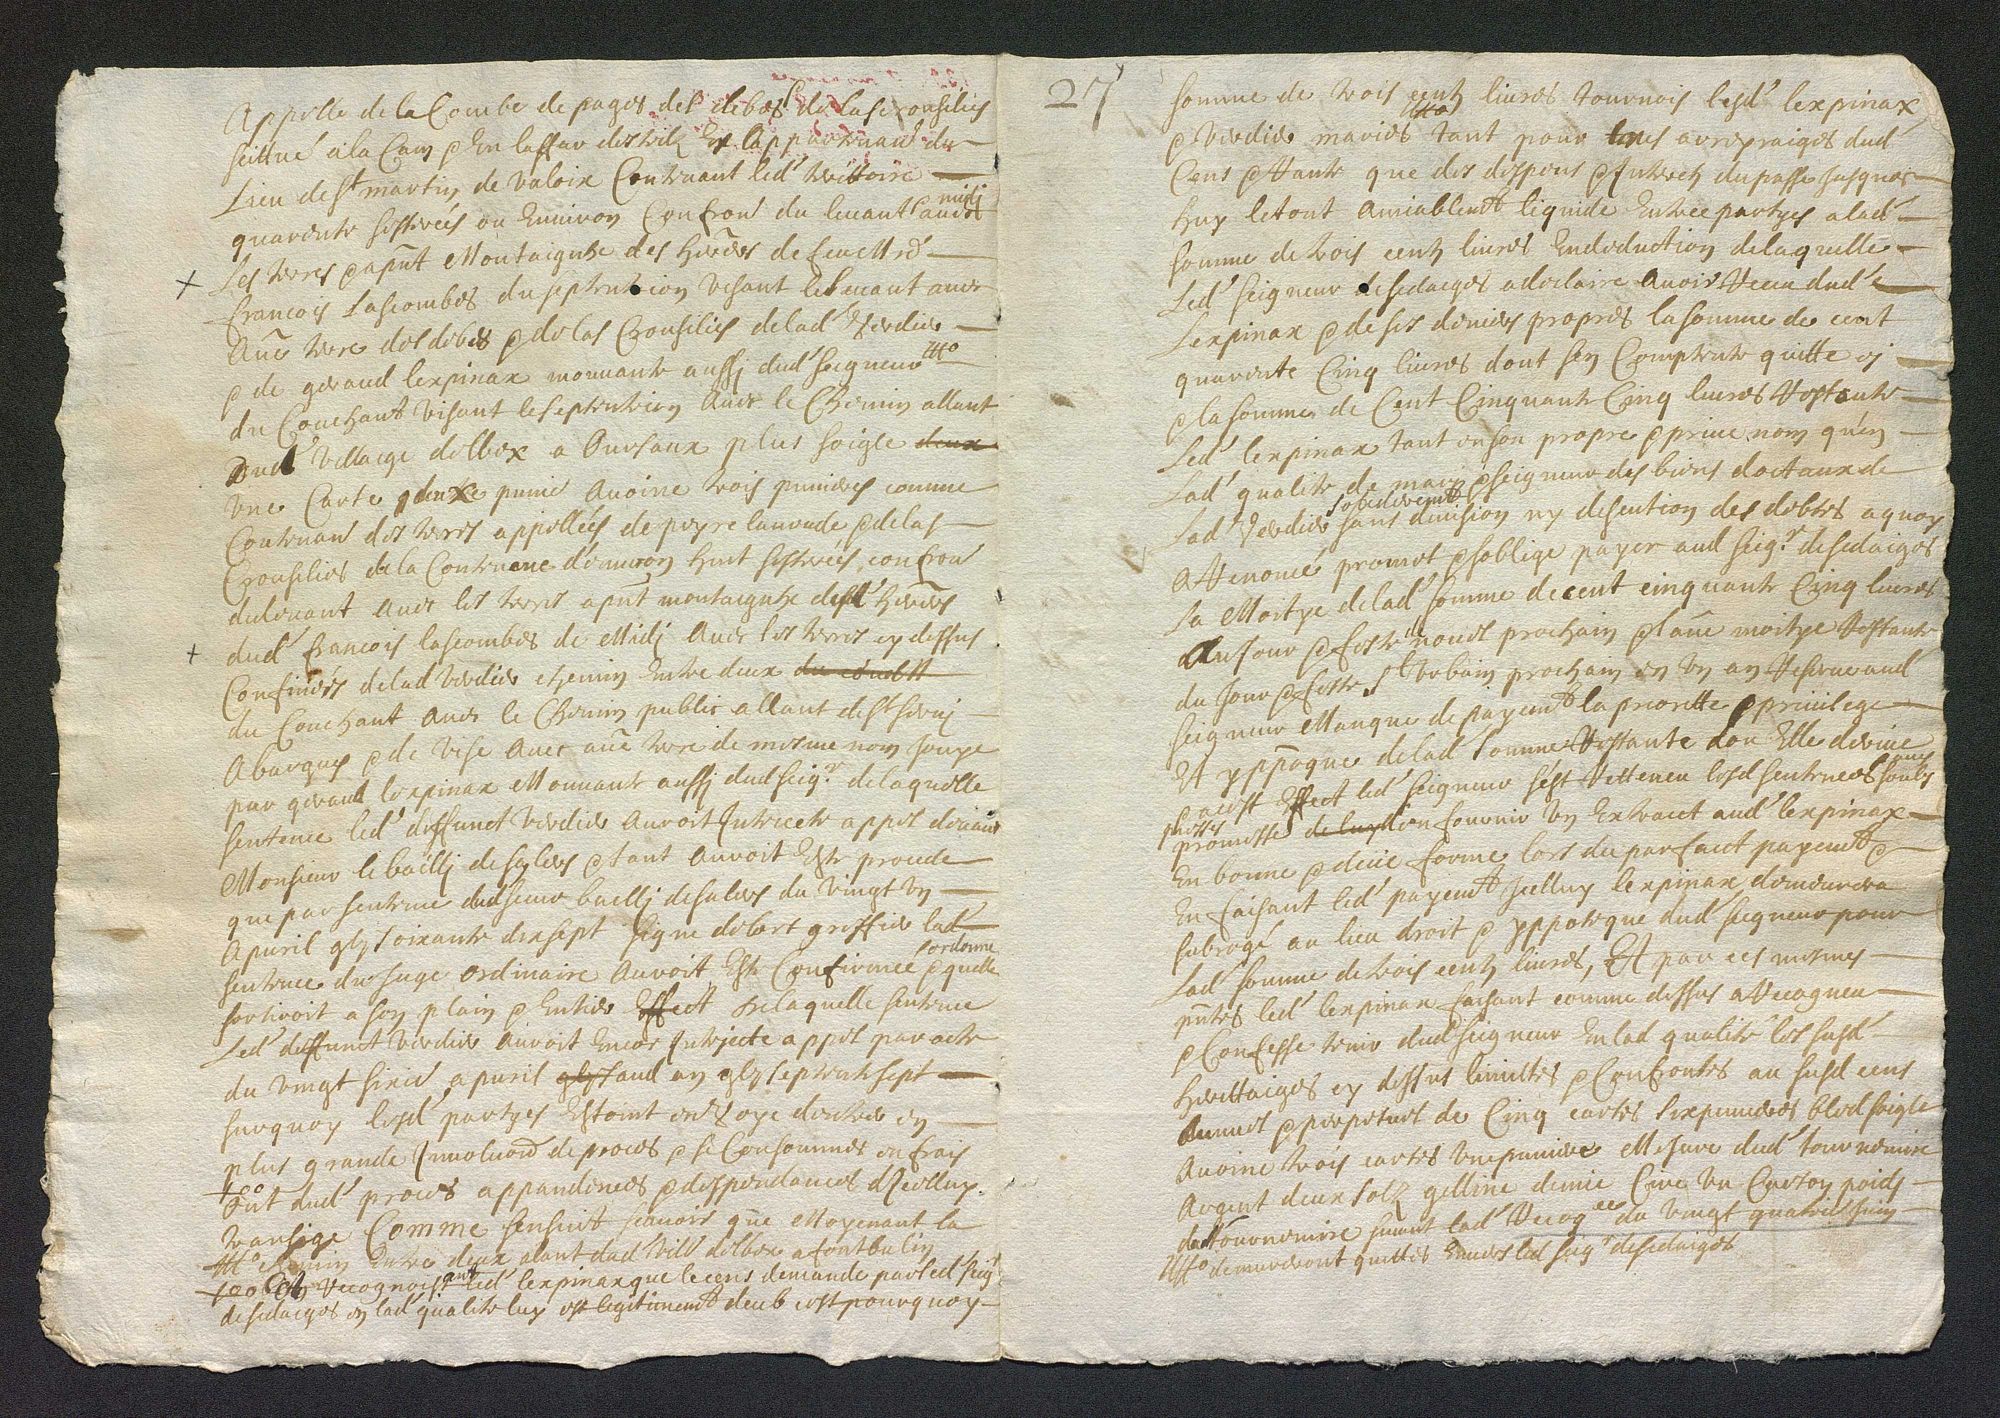 Appelle de la Combe de pages del debes de las Crousilies
scittué a la Cam & En laffar desvilz Et appartenant du
Lieu de St martin de valoix Contenant led' territoire
quarente sesterées ou Environ Confron' du levant & midj avec
Les terres & apnt Montaignhe des heires de feu Mre
francois Lascombes du septentrion visant le Levant avec
Aue terre des debes & de las Crousilies de lad' Verdier
& de geraud lexpinax mouvante aussj dud' seigneur
du Couchant visant le septentrion Avec le Chemin allant
dud' village delbex a Aursaux plus seigle deux
une Carte deuxe punie Avoine trois punieres comme
Contenant des terres appellées de peyre lavade & de las
Crousilies de la Contenance d'environ huit sesterées, confron'
du levant Avec les terres apnt montaignhe desd' heires
dud' francois lascombes de Midj Avec les terres cy dessus
Confinées de lad verdier chemin Entre deux
du Couchant Avec le Chemin public allant de St
A & de vise Avec aue terre de mesme nom Jouye
par geraud lexpinax Mouvante aussj dud seigr. de laquelle
sentence led' deffunct verdier Auroit Interjecte appel devant
Monsieur le baillj de salers & tant Auroit Este procede
que par sentence dud sieur baillj de salers du vingt un
Apuril soixante dix sept signe griffier lad'
sentence du Juge ordinaire Auroit Este Confirmee & ordonne quelle
sortiroit a son plain & Entier Effect De laquelle sentence
Led' deffunct verdier Auroit Encor Interjecte appel par acte
du vingt sixie apuril aud an septente sept
surquoy lesd' partyes Estoint en voye dentrer en
plus grande Involuon de proces & se Consommer en frais
Ont dud' proces appandences & despendances dicelluy
transige Comme sensuit scavoir que Moyenant la
chemin Entre deux alant dud' vill' delbex a fontbulin
Et recognoissant led' lexpinax que le cens demande par led' seigr
desedaiges en lad' qualite luy est legitimemt deub cest pourquoy
27
somme de trois centz livres tournois lesd' lexpinax
& verdier maries tant pour les arreyraiges dud'
Cens & Rante que des despens & Interetz du passe Jusques
huy letout Amiablemt liquide Entre partyes a lad'
somme de trois centz livres En deduction de laquelle
Led' seigneur desedaiges a declaire Avoir Receu dud'
Lexpinax & de ses deniers propres la somme de cent
quarente Cinq livres dont sen Comptente quitte
& la somme de Cent Cinquante Cinq livres restante
Led' lexpinax tant en son propre & prive nom qu'en
Lad' qualite de mary & seigneur des biens doctaux de
Lad' verdier solidairemt sans division ny discution des debtes a quoy
A Renoncé promet & soblige payer aud seigr. desedaiges
La Moitye de lad' somme de cent cinquante Cinq livres
Au Jour & feste nouel prochain & laue moitye restante
du Jour & feste St vrbain prochain en un an Reserve aud'
seigneur Manque de payemt la priorite & privilege
Et yppotaque de lad' somme restante dou Elle derive
& a cest Effect led' seigneur sest rettenu lesd sentences
promesse den fournir un Extraict aud' lexpinax
En bonne & deue forme lors du parfaict payemt &
En faisant led' payemt Icelluy lexpinax demeurera
subrogé au lieu droit & ypotheque dud' seigneur pour
Lad' somme de trois centz livres, Et par ces mesmes
pntes led' lexpinax faisant comme dessus a Recogneu
& Confesse tenir dud seigneur En lad qualite les susd'
herittaiges cy dessus limittes & Confrontes au susd cens
Annuel & perpetuel de Cinq cartes six punieres bled seigle
Avoine trois cartes une puniere Mesure dud' tournemire
Argent deux solz gelline demie Cire un Carton poids
dud Tournemire suivant lad' Recogce du vingt quatre Juin
demeureront quittes Envers led seigr desedaiges